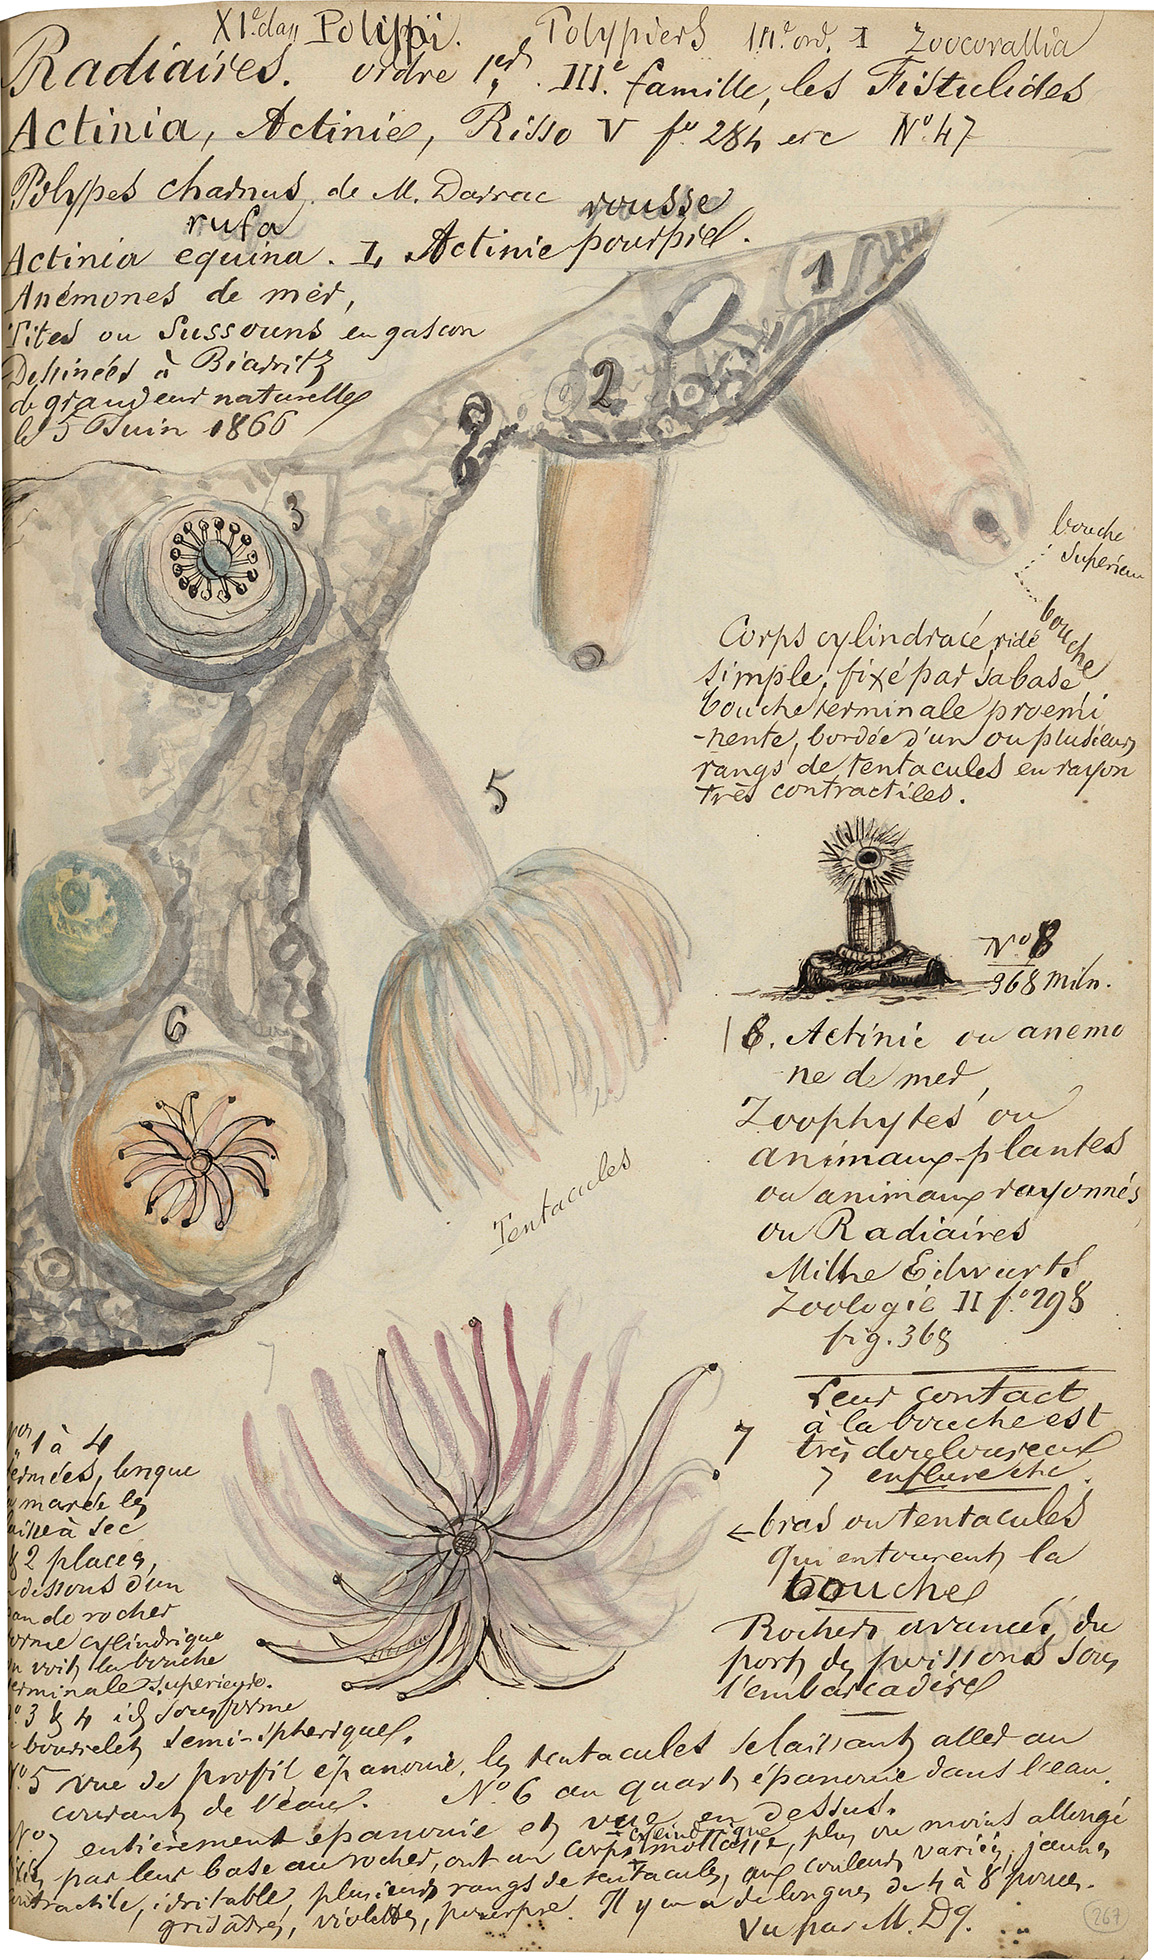 XIe. clas Polippi. Polypiers III.e ord. I Zoocorallia
Radiaires. ordre 1er. IIIe. famille, les Fistulides
Actinia, Actinie, Risso V fo. 284 etc No. 47
Polypes charnus, de M. Darrac
rufa rousse
Actinia equina. L, Actinie pourpre.
Anémones de mer,
Pites ou Sussouns en gascon
Dessinées à Biarritz
de grandeur naturelle
le 5 Juin 1866
1
2
3
bouche
Supérieu
bouche
Corps cylindracé, ridé
simple, fixé par sa base
bouche terminale proémi
-nente, bordée d'un ou plusieurs
rangs de tentacules en rayon
très contractiles.
5
No 8
368 Miln.
6
8. Actinie ou anemo
ne de mer,
Zoophytes ou
animaux-plantes
ou animaux rayonnés
ou Radiaires
Milne Edwarts
Zoologie II fo. 298
fig. 368
Tentacules
7
Leur contact
à la bouche est
7 très douloureux
enflure etc.
bras ou tentacules
qui entourent la
bouche
Rochers avancés, du
port des poissons sous
l'embarcadère
1 à 4
fermées, lorsque
marée les
à sec
2 places,
dessous d'un
de rocher
forme cylindrique
on voit la bouche
terminale supérieure.
No 3 & 4 id sous forme
bourrelets semi-sphériques.
No 5 vue de profil épanouie, les tentacules se laissant aller au
courant de l'eau. No. 6 au quart épanouie dans l'eau.
No 7 entièrement épanouie et vue en dessus.
cylindrique
fixés par leur base au rocher, ont un corps mollasse, plus ou moins allongé
contractile, irritable, plusieurs rangs de tentacules, aux couleurs variées, jaunes
grisâtres, violettes, pourpre. Il y en a de longues de 4 à 8 pouces.
Vu par M. Dq.
267